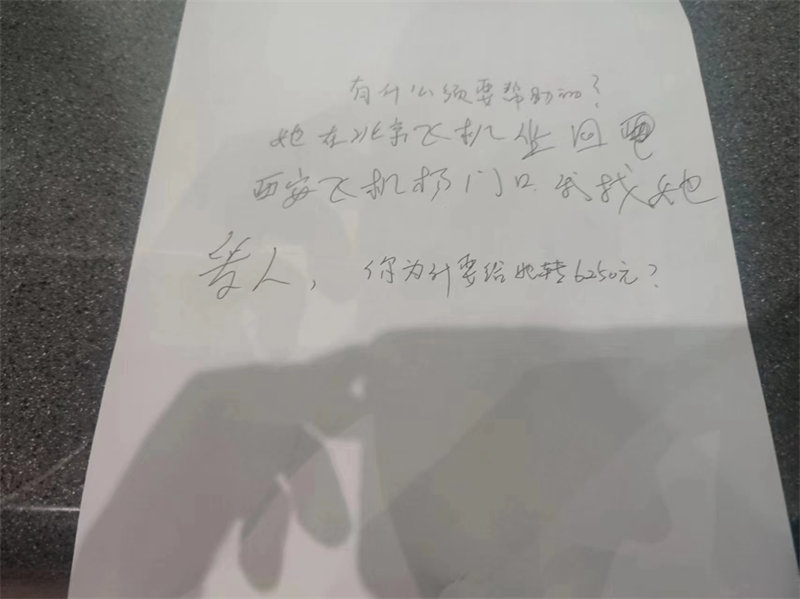 有什么须要帮助的?
她在北京飞机坐回
西安飞机场门口我找她
人, 你为什要给她转6250元?